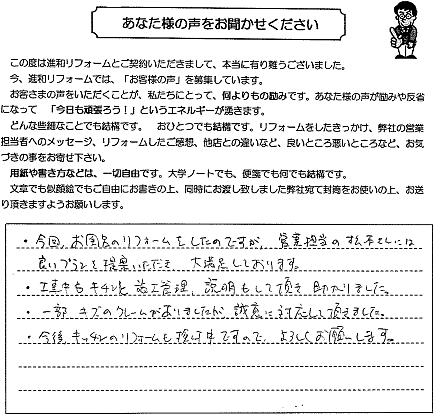 あなた様の声をお聞かせください
この度は進和リフォームとご契約いただきまして、本当に有り難うございました。
今、進和リフォームでは、「お客様の声」を募集しています。
お客さまの声をいただくことが、私たちにとって、何よりもの励みです。あなた様の声が励みや反省
になって 「今日も頑張ろう！」というエネルギーが湧きます。
どんな些細なことでも結構です。 おひとつでも結構です。リフォームをしたきっかけ、弊社の営業
担当者へのメッセージ、リフォームしたご感想、他店との違いなど、良いところ悪いところなど、お気
づきの事をお寄せ下さい。
用紙や書き方などは、一切自由です。大学ノートでも、便箋でも何でも結構です。
文章でも似顔絵でもご自由にお書きの上、同時にお渡し致しました弊社宛て封筒をお使いの上、お送
り頂きますようお願いします。
・今回、お風呂のリフォームをしたのですが、営業担当の さんには
良いプランを提案いただき 大満足しております。
・工事中もキチンと施工管理、説明もして頂き助かりました。
・一部 キズのクレームがありましたが誠意に対応して頂きました。
・今後キッチンのリフォームも検討中ですので、よろしくお願いします。